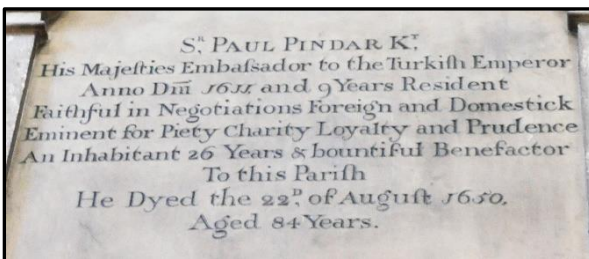 Sᴿ. PAUL PINDAR Kᵀ.
His Majeſties Embaſsador to the Turkiſh Emperor
Anno Dm̄ 1611 and 9 Years Resident
Faithful in Negotiations Foreign and Domeſtick
Eminent for Piety Charity Loyalty and Prudence
An Inhabitant 26 Years & bountiful Benefactor
To this Pariſh
He Dyed the 22ᴰ. of Auguſt 1650.
Aged 84 Years.